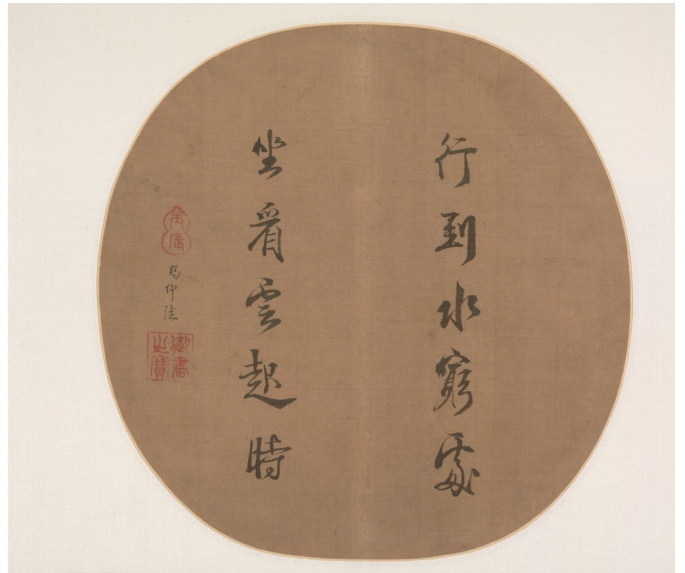 行到水窮處
坐看雲起時
丙辰
賜仲
御書之寶